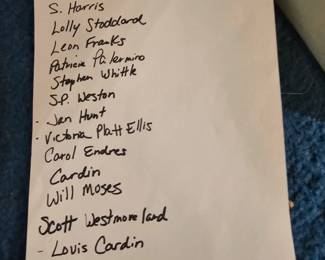 S. Harris
Lolly Stoddard
Leon Franks
Patricia Palermino
Stephen Whittle
S.P. Weston
- Jen Hunt
- Victoria Platt Ellis
Carol Endres
Cardin
Will Moses
Scott Westmoreland
- Louis Cardin